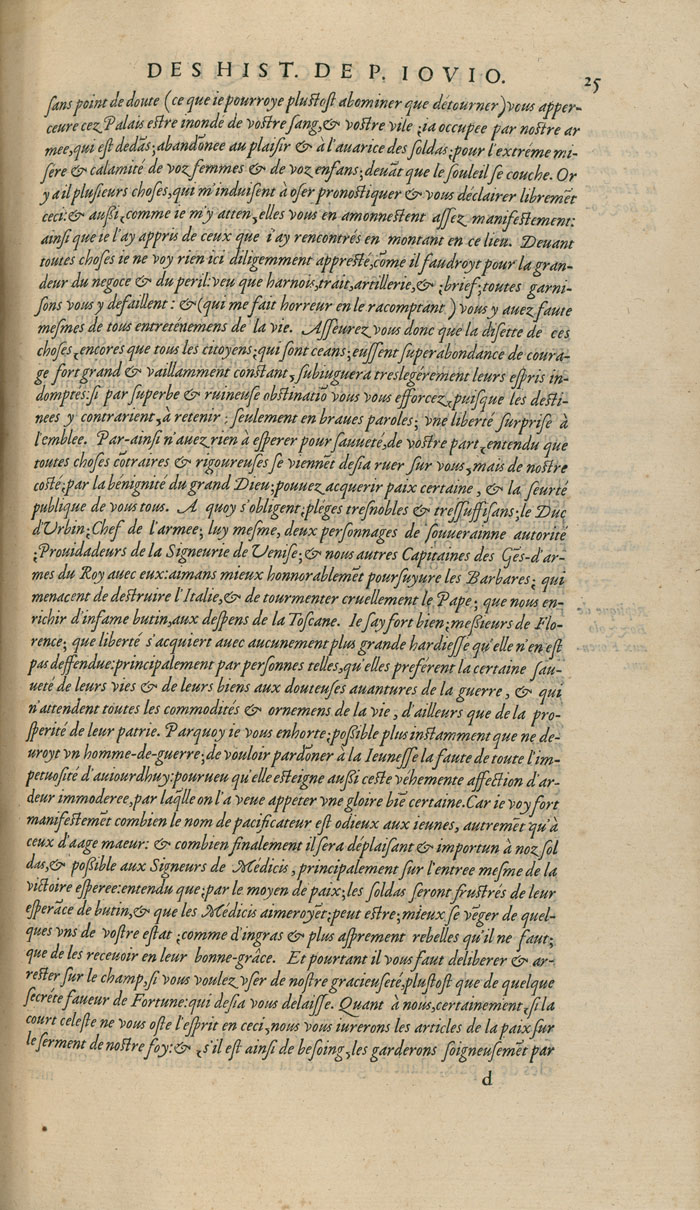 DES HIST. DE P. IOVIO. 25
sans point de doute (ce que ie pourroye plustost abominer que détourner) vous apper-
ceure cez Palais estre inondé de vostre sang, & vostre vile ia occupee par nostre ar
mee, qui est dedãs; abandõnee au plaisir & à l'auarice des soldas; pour l'extréme mi-
sére & calamité de voz femmes & de voz enfans; deuãt que le souleil se couche. Or
y a il plusieurs choses, qui m'induisent à oser pronostiquer & vous déclairer libremẽt
ceci: & außi, comme ie m'y atten, elles vous en amonnestent assez manifestement:
ainsi que ie l'ay appris de ceux que i'ay rencontrés en montant en ce lieu. Deuant
toutes choses ie ne voy rien ici diligemment appresté, cõme il faudroyt pour la gran-
deur du negoce & du peril: veu que harnois, trait, artillerie, &, brief, toutes garni-
sons vous y defaillent: & (qui me fait horreur en le racomptant) vous y auez faute
mesmes de tous entreténemens de la vie. Asseurez vous donc que la disette de ces
choses, encores que tous les citoyens, qui sont ceans, eussent superabondance de coura-
ge fort grand & vaillamment constant, subiuguera treslegérement leurs espris in-
domptes: si par superbe & ruineuse obstinatiõ vous vous efforcez, puisque les desti-
nees y contrarient, à retenir; seulement en braues paroles; vne liberté surprise à
l'emblee. Par-ainsi n'auez rien à espérer pour sauueté, de vostre part, entendu que
toutes choses cõtraires & rigoureuses se viennẽt desia ruer sur vous, mais de nostre
coste, par la bénignité du grand Dieu; pouuez acquerir paix certaine, & la seurté
publique de vous tous. A quoy s'obligent; pleges tresnobles & tressuffisans; le Duc
d'Vrbin; Chef de l'armee; luy mesme, deux personnages de souuerainne autorité
; Prouidadeurs de la Signeurie de Venise; & nous autres Capitaines des Gẽs-d'ar-
mes du Roy auec eux: aimans mieux honnorablemẽt poursuyure les Barbares; qui
menacent de destruire l'Italie, & de tourmenter cruellement le Pape; que nous en-
richir d'infame butin, aux despens de la Toscane. Ie say fort bien; meßieurs de Flo-
rence; que liberté s'acquiert auec aucunement plus grande hardiesse qu'elle n'en est
pas deffendue: principalement par personnes telles, qu'elles preférent la certaine sau-
ueté de leurs vies & de leurs biens aux douteuses auantures de la guerre, & qui
n'attendent toutes les commodités & ornemens de la vie, d'ailleurs que de la pro-
sperité de leur patrie. Parquoy ie vous enhorte; poßible plus instamment que ne de-
uroyt vn homme-de-guerre; de vouloir pardõner à la Ieunesse la faute de toute l'im-
petuosité d'auiourdhuy: pourueu qu'elle esteigne außi ceste véhemente affection d'ar-
deur immoderee, par laq̃lle on l'a veue appeter vne gloire biẽ certaine. Car ie voy fort
manifestemẽt combien le nom de pacificateur est odieux aux ieunes, autremẽt qu'à
ceux d'aage maeur: & combien finalement il sera déplaisant & importun à noz sol
das, & poßible aux Signeurs de Médicis, principalement sur l'entree mesme de la
victoire esperee: entendu que; par le moyen de paix; les soldas seront frustrés de leur
espérãce de butin, & que les Médicis aimeroyẽt; peut estre; mieux se vẽger de quel-
ques vns de vostre estat; comme d'ingras & plus asprement rebelles qu'il ne faut;
que de les receuoir en leur bonne-grâce. Et pourtant il vous faut deliberer & ar-
rester sur le champ, si vous voulez vser de nostre gracieuseté, plustost que de quelque
secréte faueur de Fortune: qui desia vous delaisse. Quant à nous, certainement, si la
court celeste ne vous oste l'esprit en ceci, nous vous iurerons les articles de la paix sur
le serment de nostre foy: &, s'il est ainsi de besoing, les garderons soigneusemẽt par
d